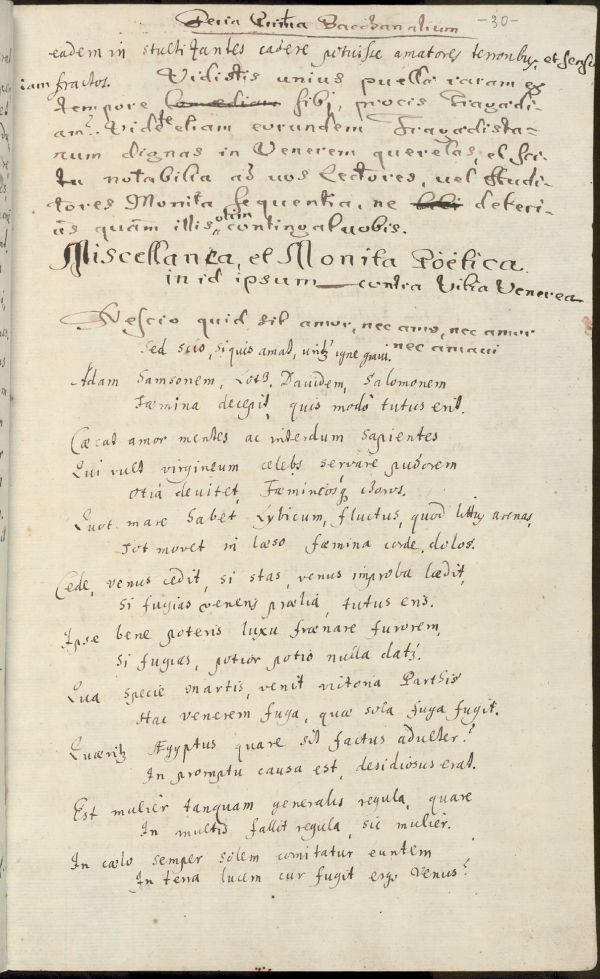 Feria Prima Bacchanalium -30-
eadem in stultitantes cadere potuisse amatores terroribus, et sensu
iam fractos. Vidistis unius puellæ raram ex
tempore Comœdiam sibi, procis Tragœdi-
am? Videte etiam eorundem Tragœdista=
rum dignas in Venerem querelas, et sci-
tu notabilia ad vos Lectores, vel Audi-
tores Monita sequentia, ne deteri-
us quàm illis olim contingat vobis.
Miscellanea, et Monita Poëtica
in id ipsum contra Vitia Venerea
Nescio quid sit amor, nec amo, nec amor
nec amavi
Sed scio, si quis amat, uritur igne gravi.
Adam Samsonem, Loth, Davidem, Salomonem
Fæmina decepit, quis modò tutus erit.
Cæcat amor mentes ac interdum sapientes
Qui vult virgineum cælebs servare pudorem
Otia devitet, Fæmineosq choros.
Quot mare habet Lybicum, fluctus, quod littus arenas,
Tot movet in læso fæmina corde dolos.
Cede, venus cedit, si stas, venus improba lædit,
Si fugias veneris prælia, tutus eris.
Ipse bene poteris luxu frænare furorem,
Si fugias, potior potio nulla datur.
Qua specie Martis, venit victoria Parthis
Hac venerem fuga, quæ sola fuga fugit.
Quæritur Ægyptus quare sit factus adulter?
In promptu causa est, desidiosus erat.
Est mulier tanquam generalis regula, quare
In multis fallit regula, sic mulier.
In cælo semper solem comitatur euntem
In terra lucem cur fugit ergo Venus?